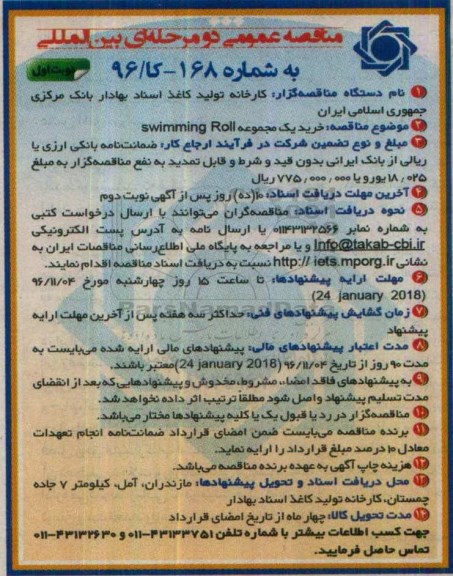 مناقصه عمومی دو مرحله‌ای بین‌المللی
به شماره ۱۶۸-کا/۹۶
نوبت اول
۱ نام دستگاه مناقصه‌گزار: کارخانه تولید کاغذ اسناد بهادار بانک مرکزی
جمهوری اسلامی ایران
۲ موضوع مناقصه: خرید یک مجموعه swimming Roll
۳ مبلغ و نوع تضمین شرکت در فرآیند ارجاع کار: ضمانت‌نامه بانکی ارزی یا
ریالی از بانک ایرانی بدون قید و شرط و قابل تمدید به نفع مناقصه‌گزار به مبلغ
۱۸,۰۲۵ یورو یا ۷۷۵,۰۰۰,۰۰۰ ریال
۴ آخرین مهلت دریافت اسناد: ۱۰(ده) روز پس از آگهی نوبت دوم
۵ نحوه دریافت اسناد: مناقصه‌گران می‌توانند با ارسال درخواست کتبی
به شماره نمابر ۰۱۱۴۳۱۳۲۵۶۶ یا ارسال نامه به آدرس پست الکترونیکی
Info@takab-cbi.ir و یا مراجعه به پایگاه ملی اطلاع‌رسانی مناقصات ایران به
نشانی http:// iets.mporg.ir نسبت به دریافت اسناد مناقصه اقدام نمایند.
۶ مهلت ارایه پیشنهادها: تا ساعت ۱۵ روز چهارشنبه مورخ ۹۶/۱۱/۰۴
(24 january 2018)
۷ زمان گشایش پیشنهادهای فنی: حداکثر سه هفته پس از آخرین مهلت ارایه
پیشنهاد
۸ مدت اعتبار پیشنهادهای مالی: پیشنهادهای مالی ارایه شده می‌بایست به
مدت ۹۰ روز از تاریخ ۹۶/۱۱/۰۴ (24 january 2018) معتبر باشند.
۹ به پیشنهادهای فاقد امضاء، مشروط، مخدوش و پیشنهادهایی که بعد از انقضای
مدت تسلیم پیشنهاد واصل شود مطلقا ترتیب اثر داده نخواهد شد.
۱۰ مناقصه‌گزار در رد یا قبول یک یا کلیه پیشنهادها مختار می‌باشد.
۱۱ برنده مناقصه می‌بایست ضمن امضای قرارداد ضمانت‌نامه انجام تعهدات
معادل ۱۰ درصد مبلغ قرارداد را ارایه نماید.
۱۲ هزینه چاپ آگهی به عهده برنده مناقصه می‌باشد.
۱۳ محل دریافت اسناد و تحویل پیشنهادها: مازندران، آمل، کیلومتر ۷ جاده
چمستان، کارخانه تولید کاغذ اسناد بهادار
۱۴ مدت تحویل کالا: چهار ماه از تاریخ امضای قرارداد
جهت کسب اطلاعات بیشتر با شماره تلفن ۴۳۱۳۳۷۵۱-۰۱۱ و ۴۳۱۳۲۶۳۰-۰۱۱
تماس حاصل فرمایید.